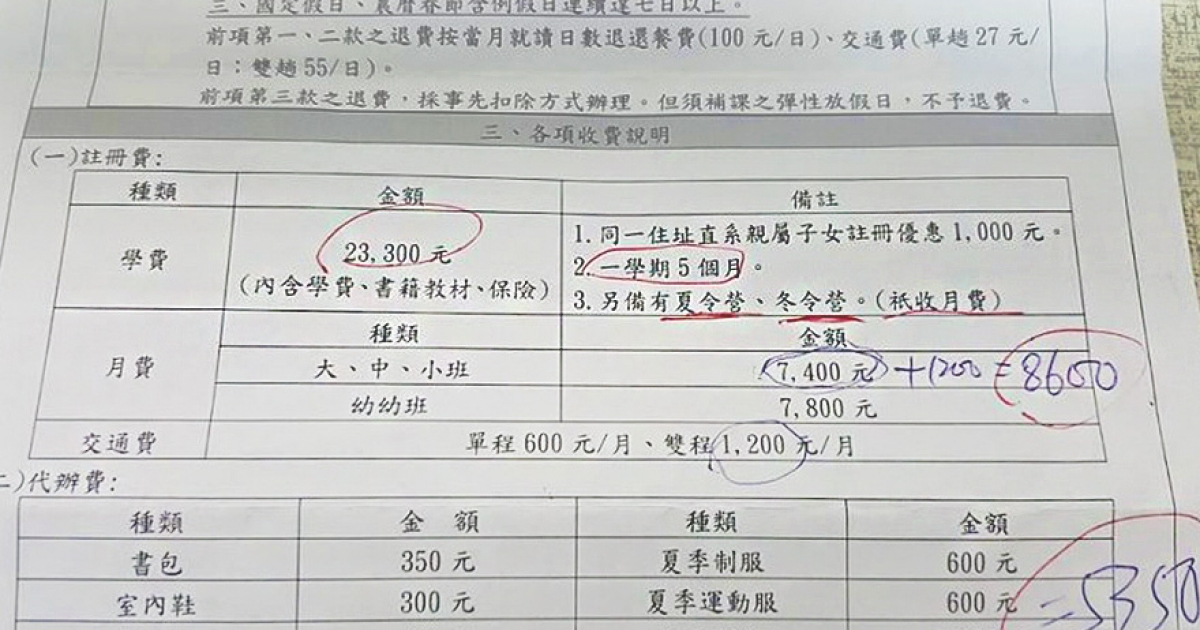 三、國定假日、農曆春節含例假日連續達七日以上。
前項第一、二款之退費按當月就讀日數退還餐費(100 元/日)、交通費(單趟 27 元/
日；雙趟 55/日)。
前項第三款之退費，採事先扣除方式辦理。但須補課之彈性放假日，不予退費。
三、各項收費說明
(一)註冊費:
種類 金額 備註
學費 23,300 元
(內含學費、書籍教材、保險)
1. 同一住址直系親屬子女註冊優惠 1,000 元。
2. 一學期 5 個月。
3. 另備有夏令營、冬令營。(祇收月費)
月費 種類 金額
大、中、小班 7,400 元 +1200 = 8600
幼幼班 7,800 元
交通費 單程 600 元/月、雙程 1,200 元/月
二)代辦費:
種類 金 額 種類 金額
書包 350 元 夏季制服 600 元
室內鞋 300 元 夏季運動服 600 元 =5350